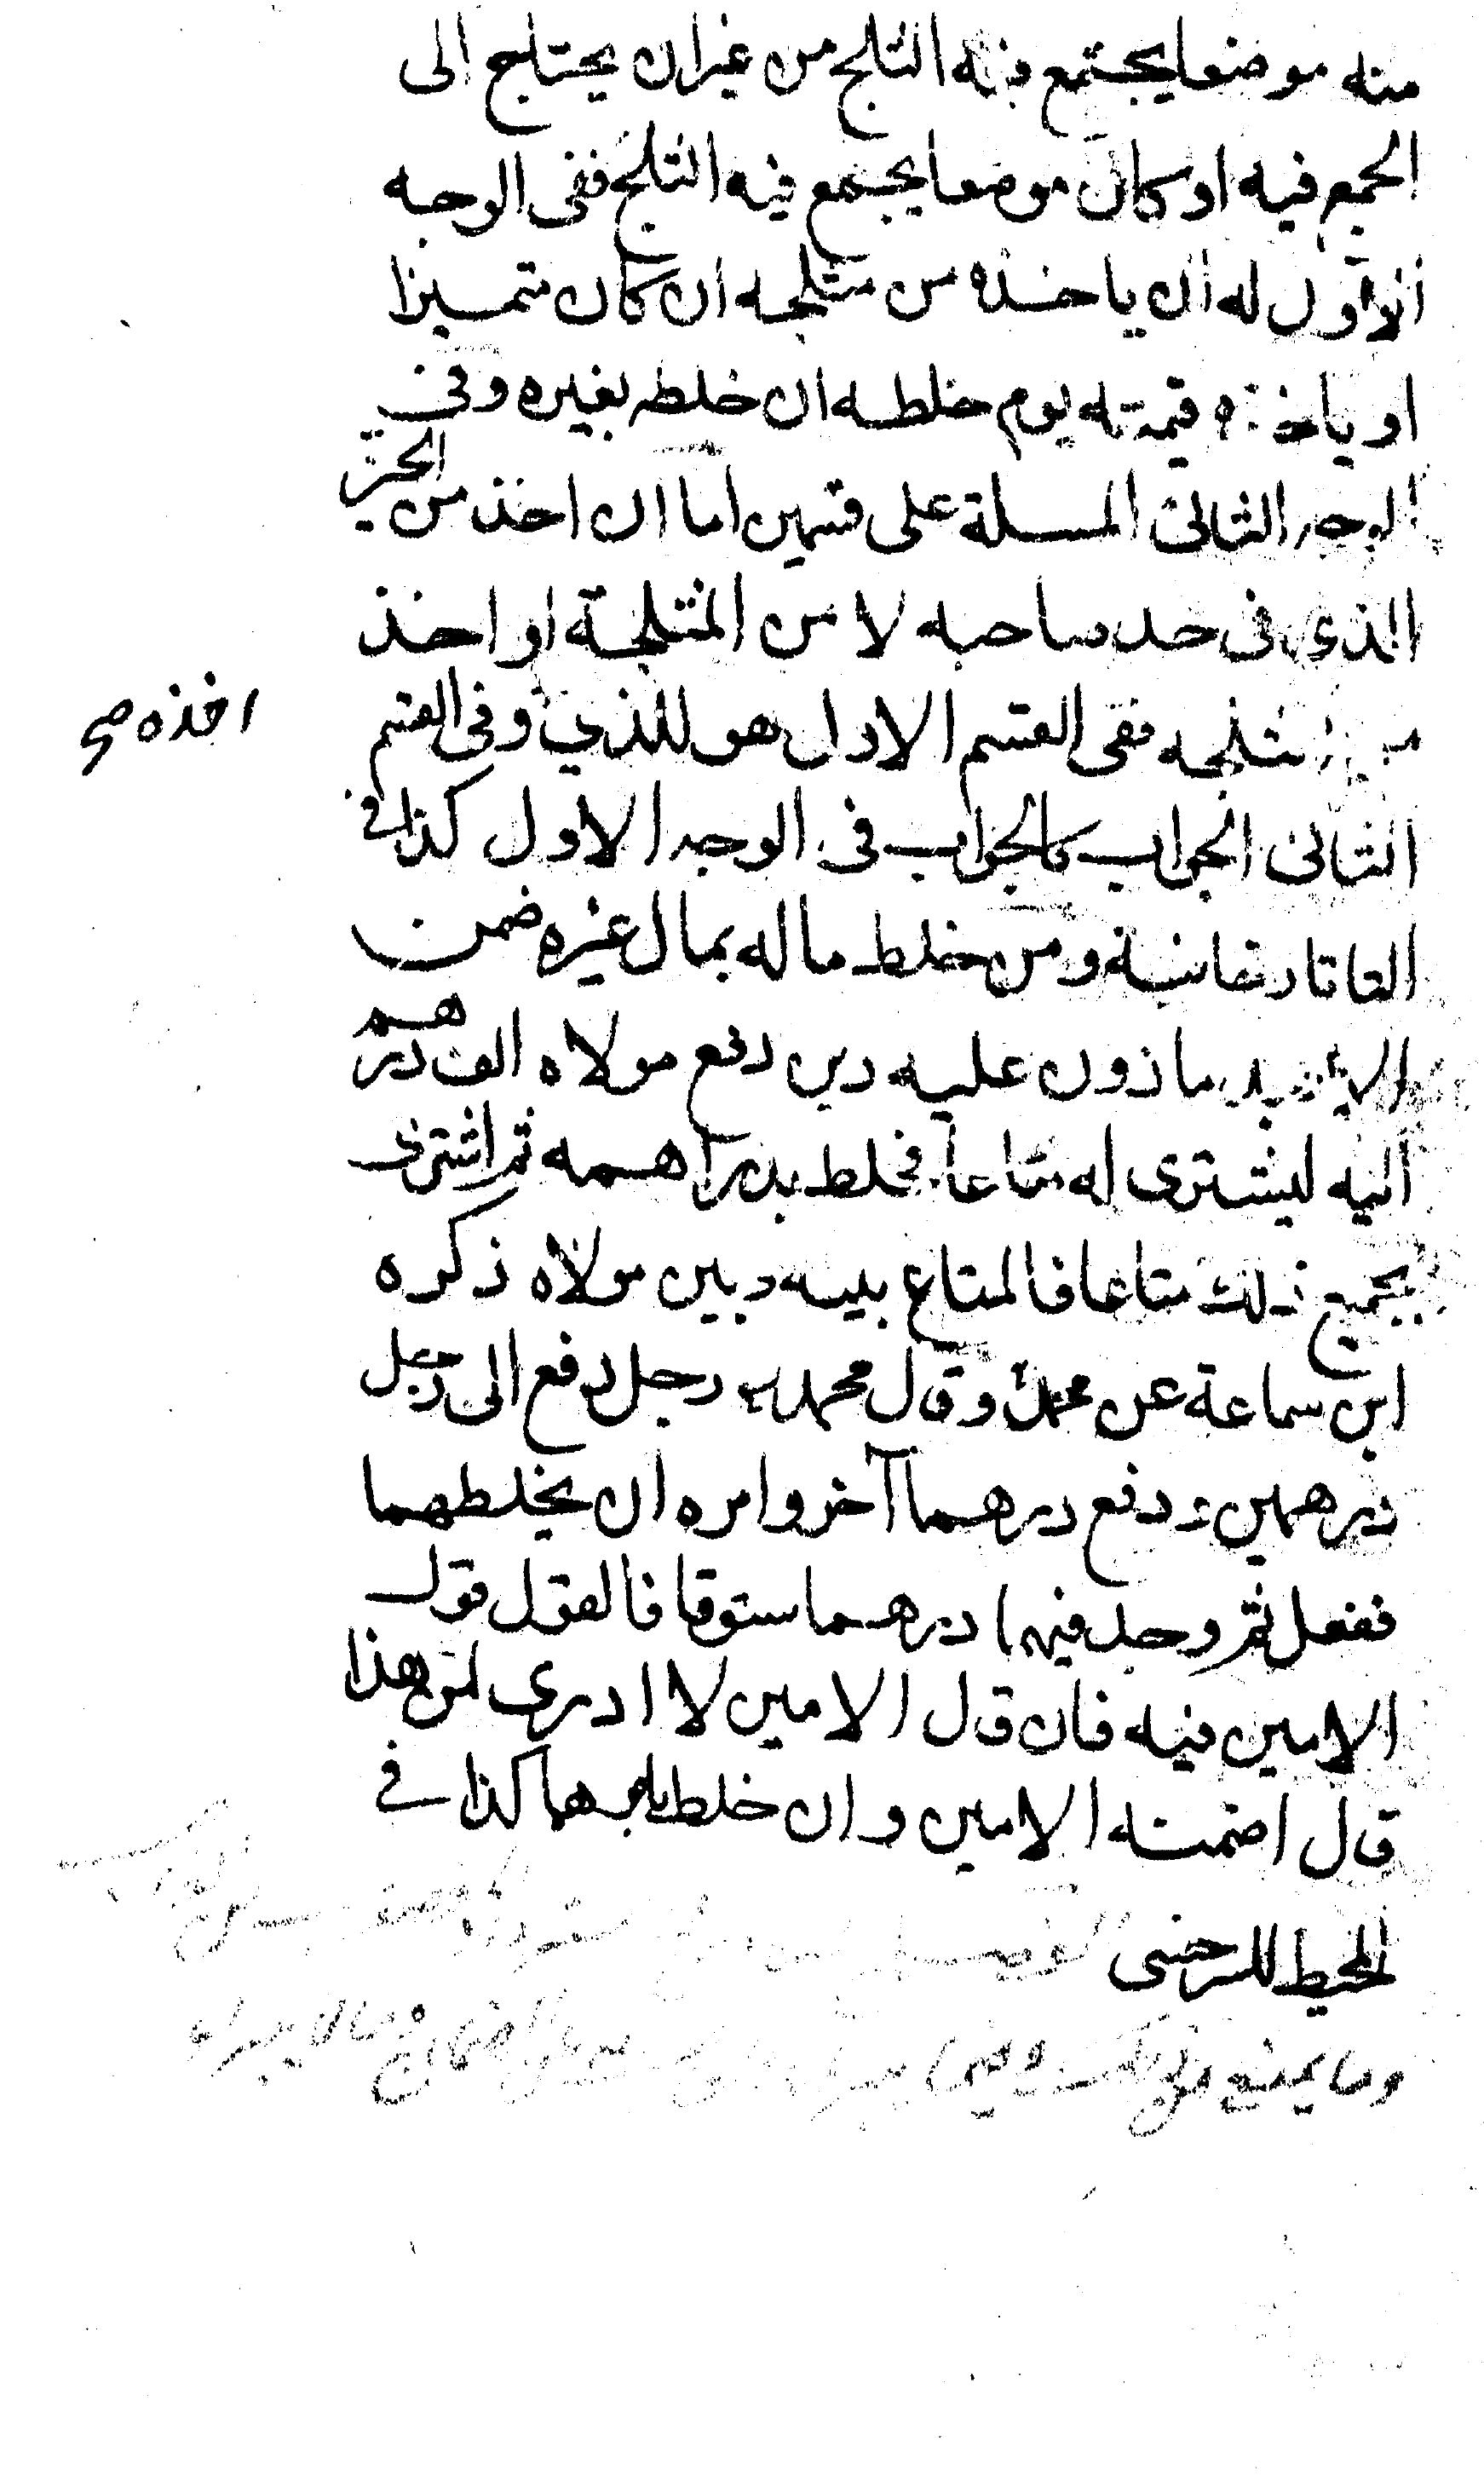 منه موضعا يجتمع فيه الثلج من غير ان يحتاج الى
الجمع فيه او كان موضعا يجمع فيه الثلج ففى الوجه
الاول له ان ياخذه من مثلجه ان كان متميزا
او ياخذ قيمته يوم خلطه ان خلطه بغيره وفى
الوجه الثانى المسلة على قسمين اما ان اخذ من الحيز
الذى فى حد صاحبه لا من المثلجة او اخذ
من مثلجه ففى القسم الاول هو للذي وفى القسم
اخذه صح
الثانى الجواب كالجواب فى الوجه الاول كذا فى
التاتارخانية ومن خلط ماله بمال غيره ضمن
ماذون عليه دين دفع مولاه الف درهم
اليه ليشترى له متاعا فخلط بدراهمه ثم اشترى
بجميع ذلك متاعا فالمتاع بينه وبين مولاه ذكره
ابن سماعة عن محمد وقال محمد رجل دفع الى رجل
درهمين ودفع درهما آخر وامره ان يخلطهما
ففعل ثم وجد فيها درهما ستوقا فالقول قول
الامين فيه فان قال الامين لا ادرى لمن هذا
قال اضمنه الامين وان خلط كذا فى
المحيط للسرخسى
وما يمنع من ذلك